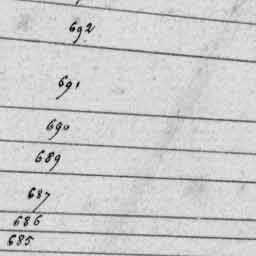 692
691
690
689
687
686
685